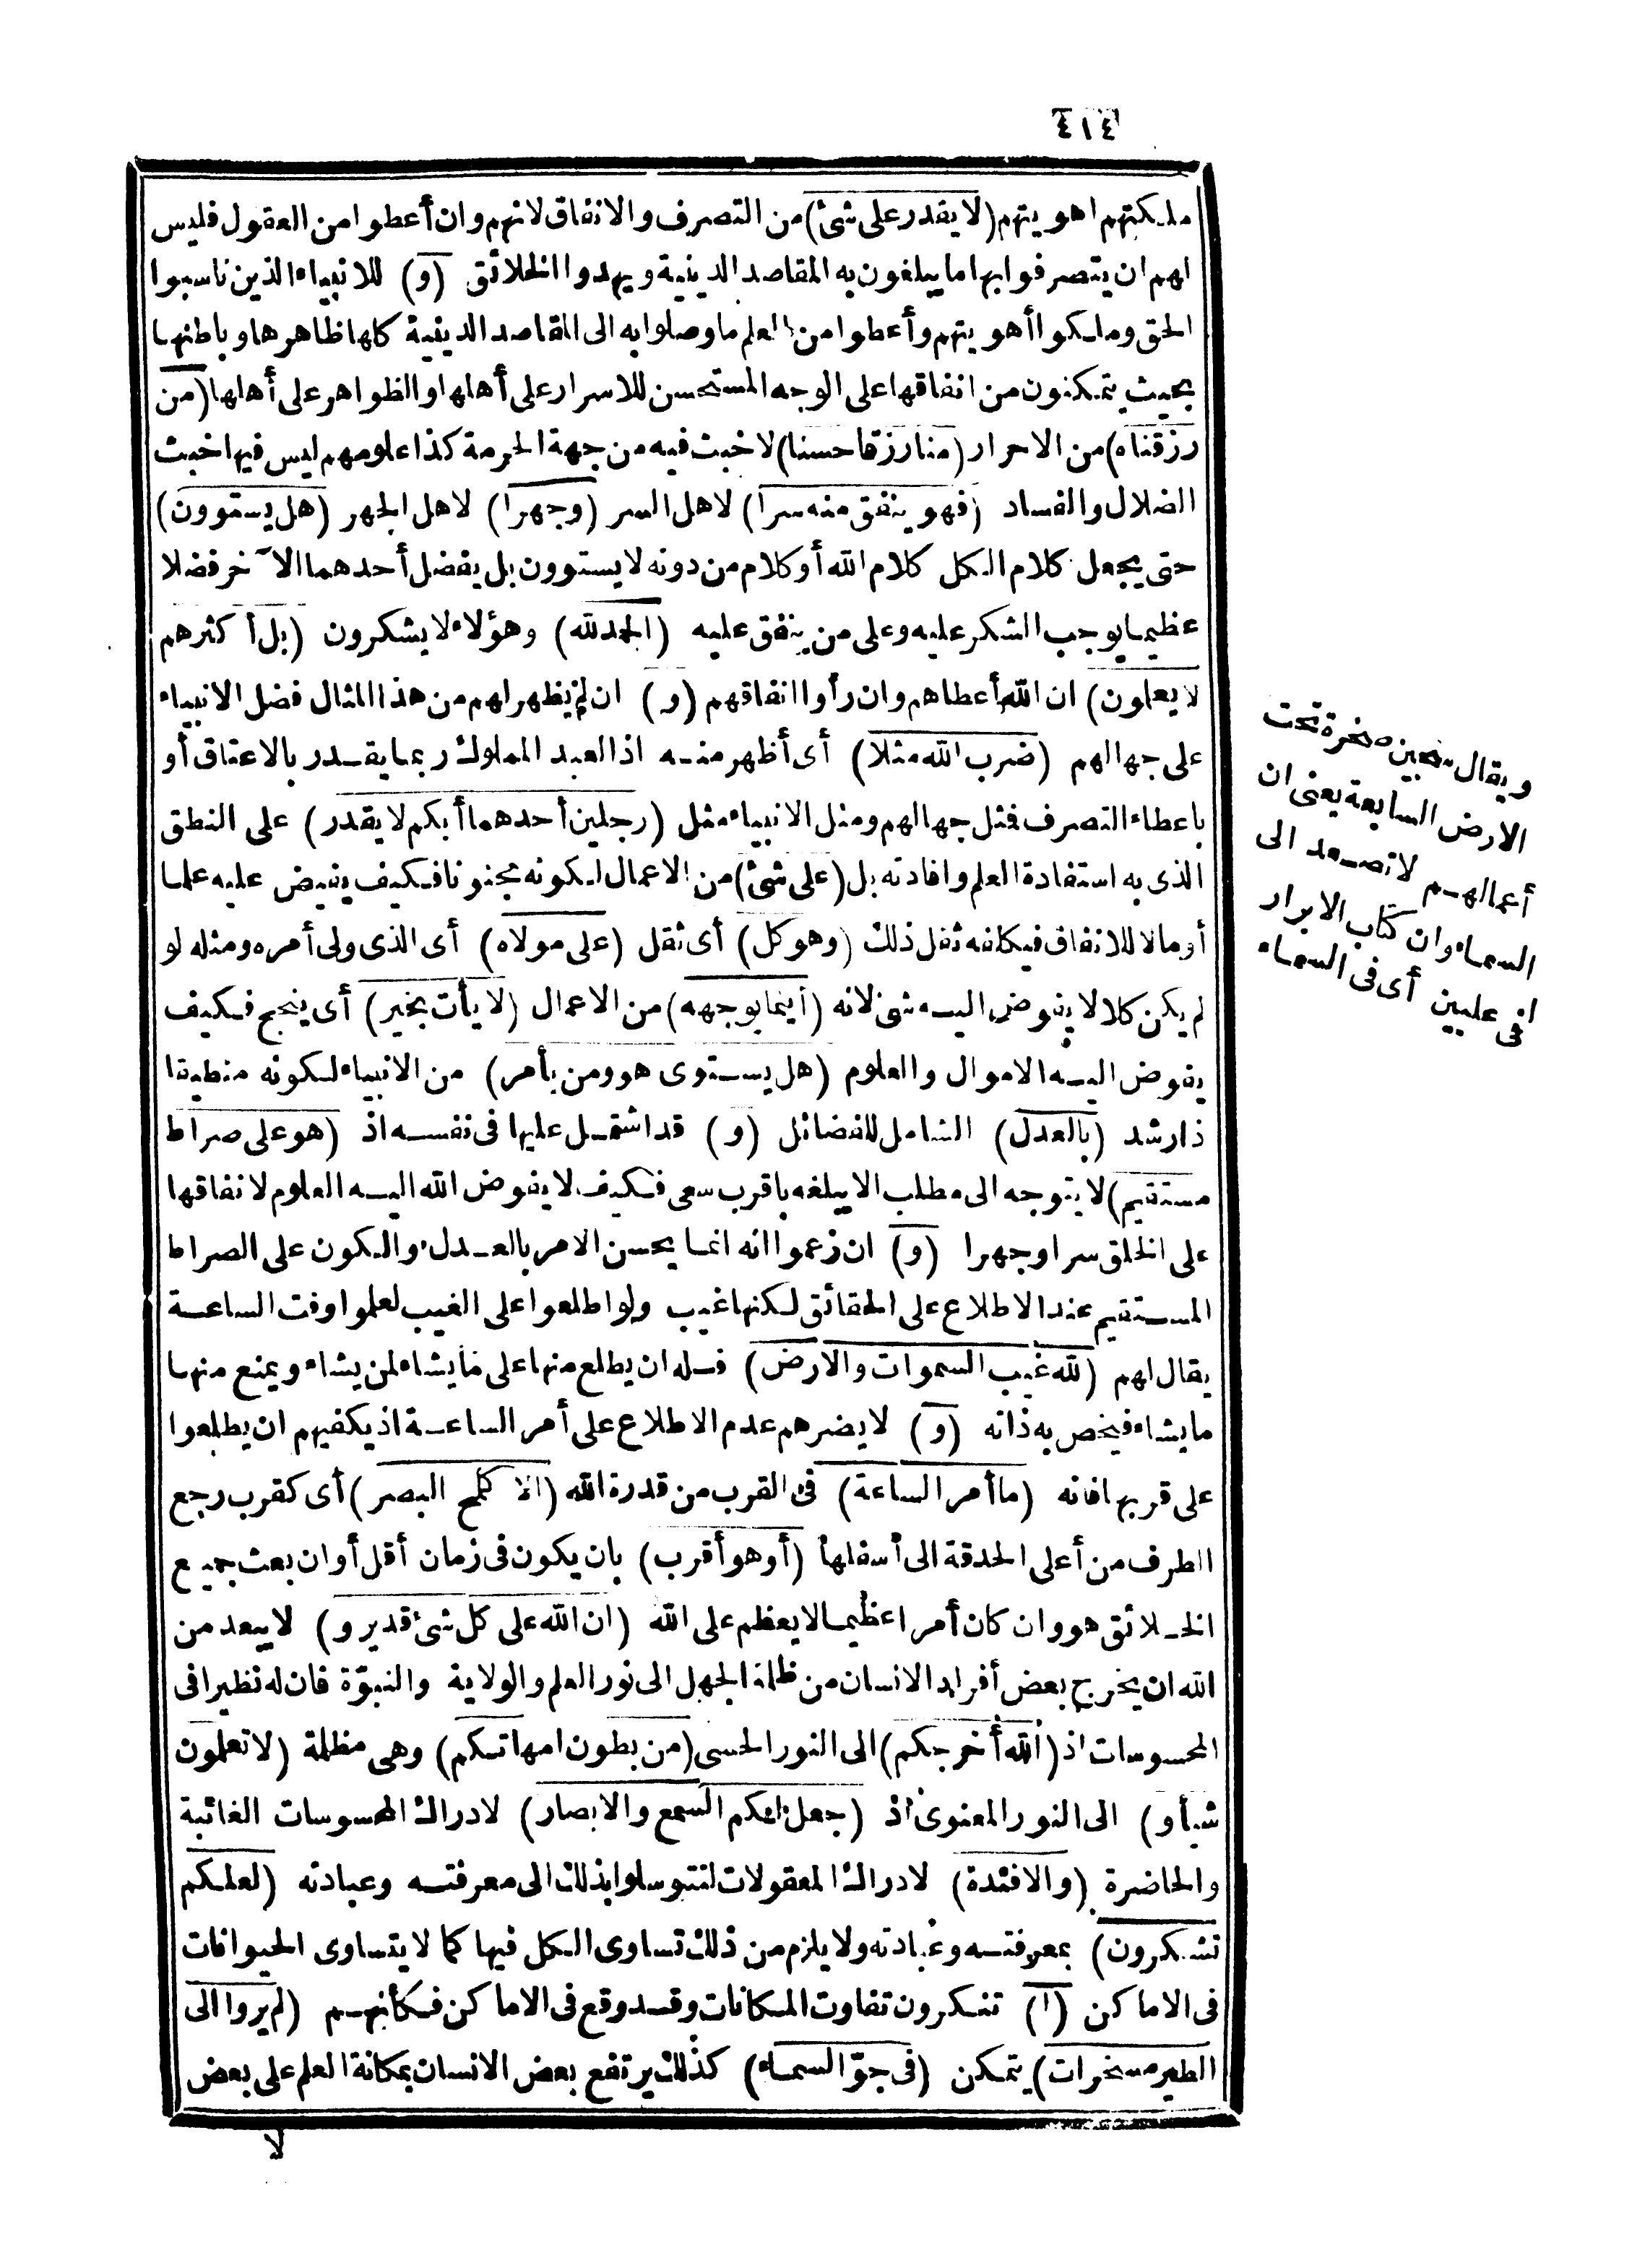 ٤١٤
ملكتهم اهويتهم (لا يقدر على شئ) من التصرف والانفاق لانهم وان أعطوا من العقول فليس
لهم ان يتصرفوا بها ما يبلغون به المقاصد الدينية ويهدوا الخلائق (و) للانبياء الذين ناسبوا
الحق وملكوا أهويتهم وأعطوا من العلم ما وصلوا به الى المقاصد الدينية كلها ظاهرها وباطنها
بحيث يتمكنون من انفاقها على الوجه المستحسن للاسرار على أهلها والظواهر على أهلها (من
رزقناه) من الاحرار (منا رزقا حسنا) لا خبث فيه من جهة الحرمة كذا علومهم ليس فيها خبث
الضلال والفساد (فهو ينفق منه سرا) لاهل السر (وجهرا) لاهل الجهر (هل يستوون)
حتى يجعل كلام الكل كلام الله أو كلام من دونه لا يستوون بل يفضل أحدهما الآخر فضلا
عظيما يوجب الشكر عليه وعلى من ينفق عليه (الحمد لله) وهؤلاء لا يشكرون (بل أكثرهم
لا يعلمون) ان الله أعطاهم وان رأوا انفاقهم (و) ان لم يظهر لهم من هذا المثال فضل الانبياء
على جهالهم (ضرب الله مثلا) أى أظهر منه اذ العبد المملوك ربما يقدر بالاعتاق أو
باعطاء التصرف فمثل جهالهم ومثل الانبياء مثل (رجلين أحدهما أبكم لا يقدر) على النطق
الذى به استفادة العلم وافادته بل (على شئ) من الاعمال لكونه مجنونا فكيف يفيض عليه علما
أو مالا للانفاق فيكافه ثقل ذلك (وهو كل) أى ثقل (على مولاه) أى الذى ولى أمره ومثله لو
لم يكن كلا لا يفوض اليه شئ لانه (أينما يوجهه) من الاعمال (لا يأت بخير) أى ينجح فكيف
يفوض اليه الاموال والعلوم (هل يستوى هو ومن يأمر) من الانبياء لكونه منطيقا
ذا رشد (بالعدل) الشامل للفضائل (و) قد اشتمل عليها فى نفسه اذ (هو على صراط
مستقيم) لا يتوجه الى مطلب الا يبلغه باقرب سعى فكيف لا يفوض الله اليه العلوم لانفاقها
على الخلق سرا وجهرا (و) ان زعموا انه انما يحسن الامر بالعدل والكون على الصراط
المستقيم عند الاطلاع على الحقائق لكنها غيب ولو اطلعوا على الغيب لعلموا وقت الساعة
يقال لهم (لله غيب السموات والارض) فله ان يطلع منها على ما يشاء لمن يشاء ويمنع منها
ما يشاء فيخص به ذاته (و) لا يضرهم عدم الاطلاع على أمر الساعة اذ يكفيهم ان يطلعوا
على قربها فانه (ما أمر الساعة) فى القرب من قدرة الله (الا كلمح البصر) أى كقرب رجع
الطرف من أعلى الحدقة الى أسفلها (أو هو أقرب) بان يكون فى زمان أقل أو ان بعث جميع
الخلائق هو وان كان أمرا عظيما لا يعظم على الله (ان الله على كل شئ قدير و) لا يبعد من
الله ان يخرج بعض أفراد الانسان من ظلمة الجهل الى نور العلم والولاية والنبوّة فان له نظيرا فى
المحسوسات اذ (الله أخرجكم) الى النور الحسى (من بطون امهاتكم) وهى مظلمة (لا تعلمون
شيأ و) الى النور المعنوى اذ (جعل لكم السمع والابصار) لادراك المحسوسات الغائبة
والحاضرة (والافئدة) لادراك المعقولات لتتوسلوا بذلك الى معرفته وعبادته (لعلكم
تشكرون) بمعرفته وعبادته ولا يلزم من ذلك تساوى الكل فيها كما لا يتساوى الحيوانات
فى الاماكن (ا) تنكرون تفاوت المكانات وقد وقع فى الاماكن فكأنهم (لم يروا الى
الطير مسخرات) يتمكن (فى جوّ السماء) كذلك يرتفع بعض الانسان بمكانة العلم على بعض
لا
ويقال سجين صخرة تحت
الارض السابعة يعنى ان
أعمالهم لا تصعد الى
السماء وان كتاب الابرار
لفى عليين أى فى السماء